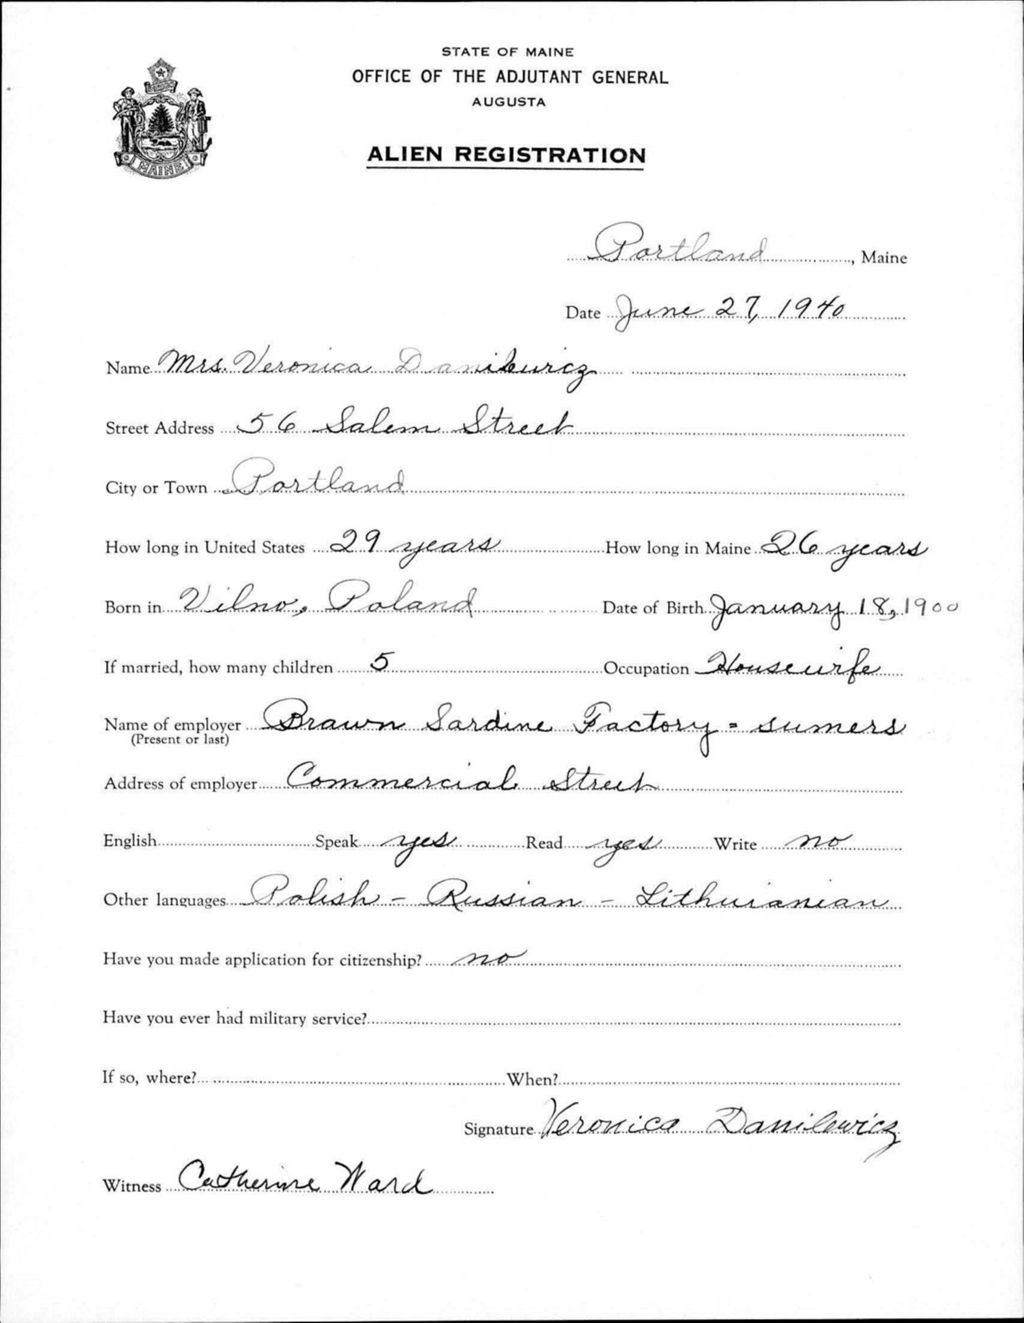 STATE OF MAINE
OFFICE OF THE ADJUTANT GENERAL
AUGUSTA
ALIEN REGISTRATION
MAINE
Portland, Maine
Date June 27, 1940
Name Mrs. Veronica Danilewicz
Street Address 56 Salem Street
City or Town Portland
How long in United States 29 years How long in Maine 26 years
Born in Vilno, Poland Date of Birth January 18, 1900
If married, how many children 5 Occupation Housewife
Name of employer Brawn Sardine Factory = sumers
(Present or last)
Address of employer Commercial Street
English Speak yes Read yes Write no
Other languages Polish - Russian - Lithuianian
Have you made application for citizenship? no
Have you ever had military service?
If so, where? When?
Signature Veronica Danilewicz
Witness Catherine Ward